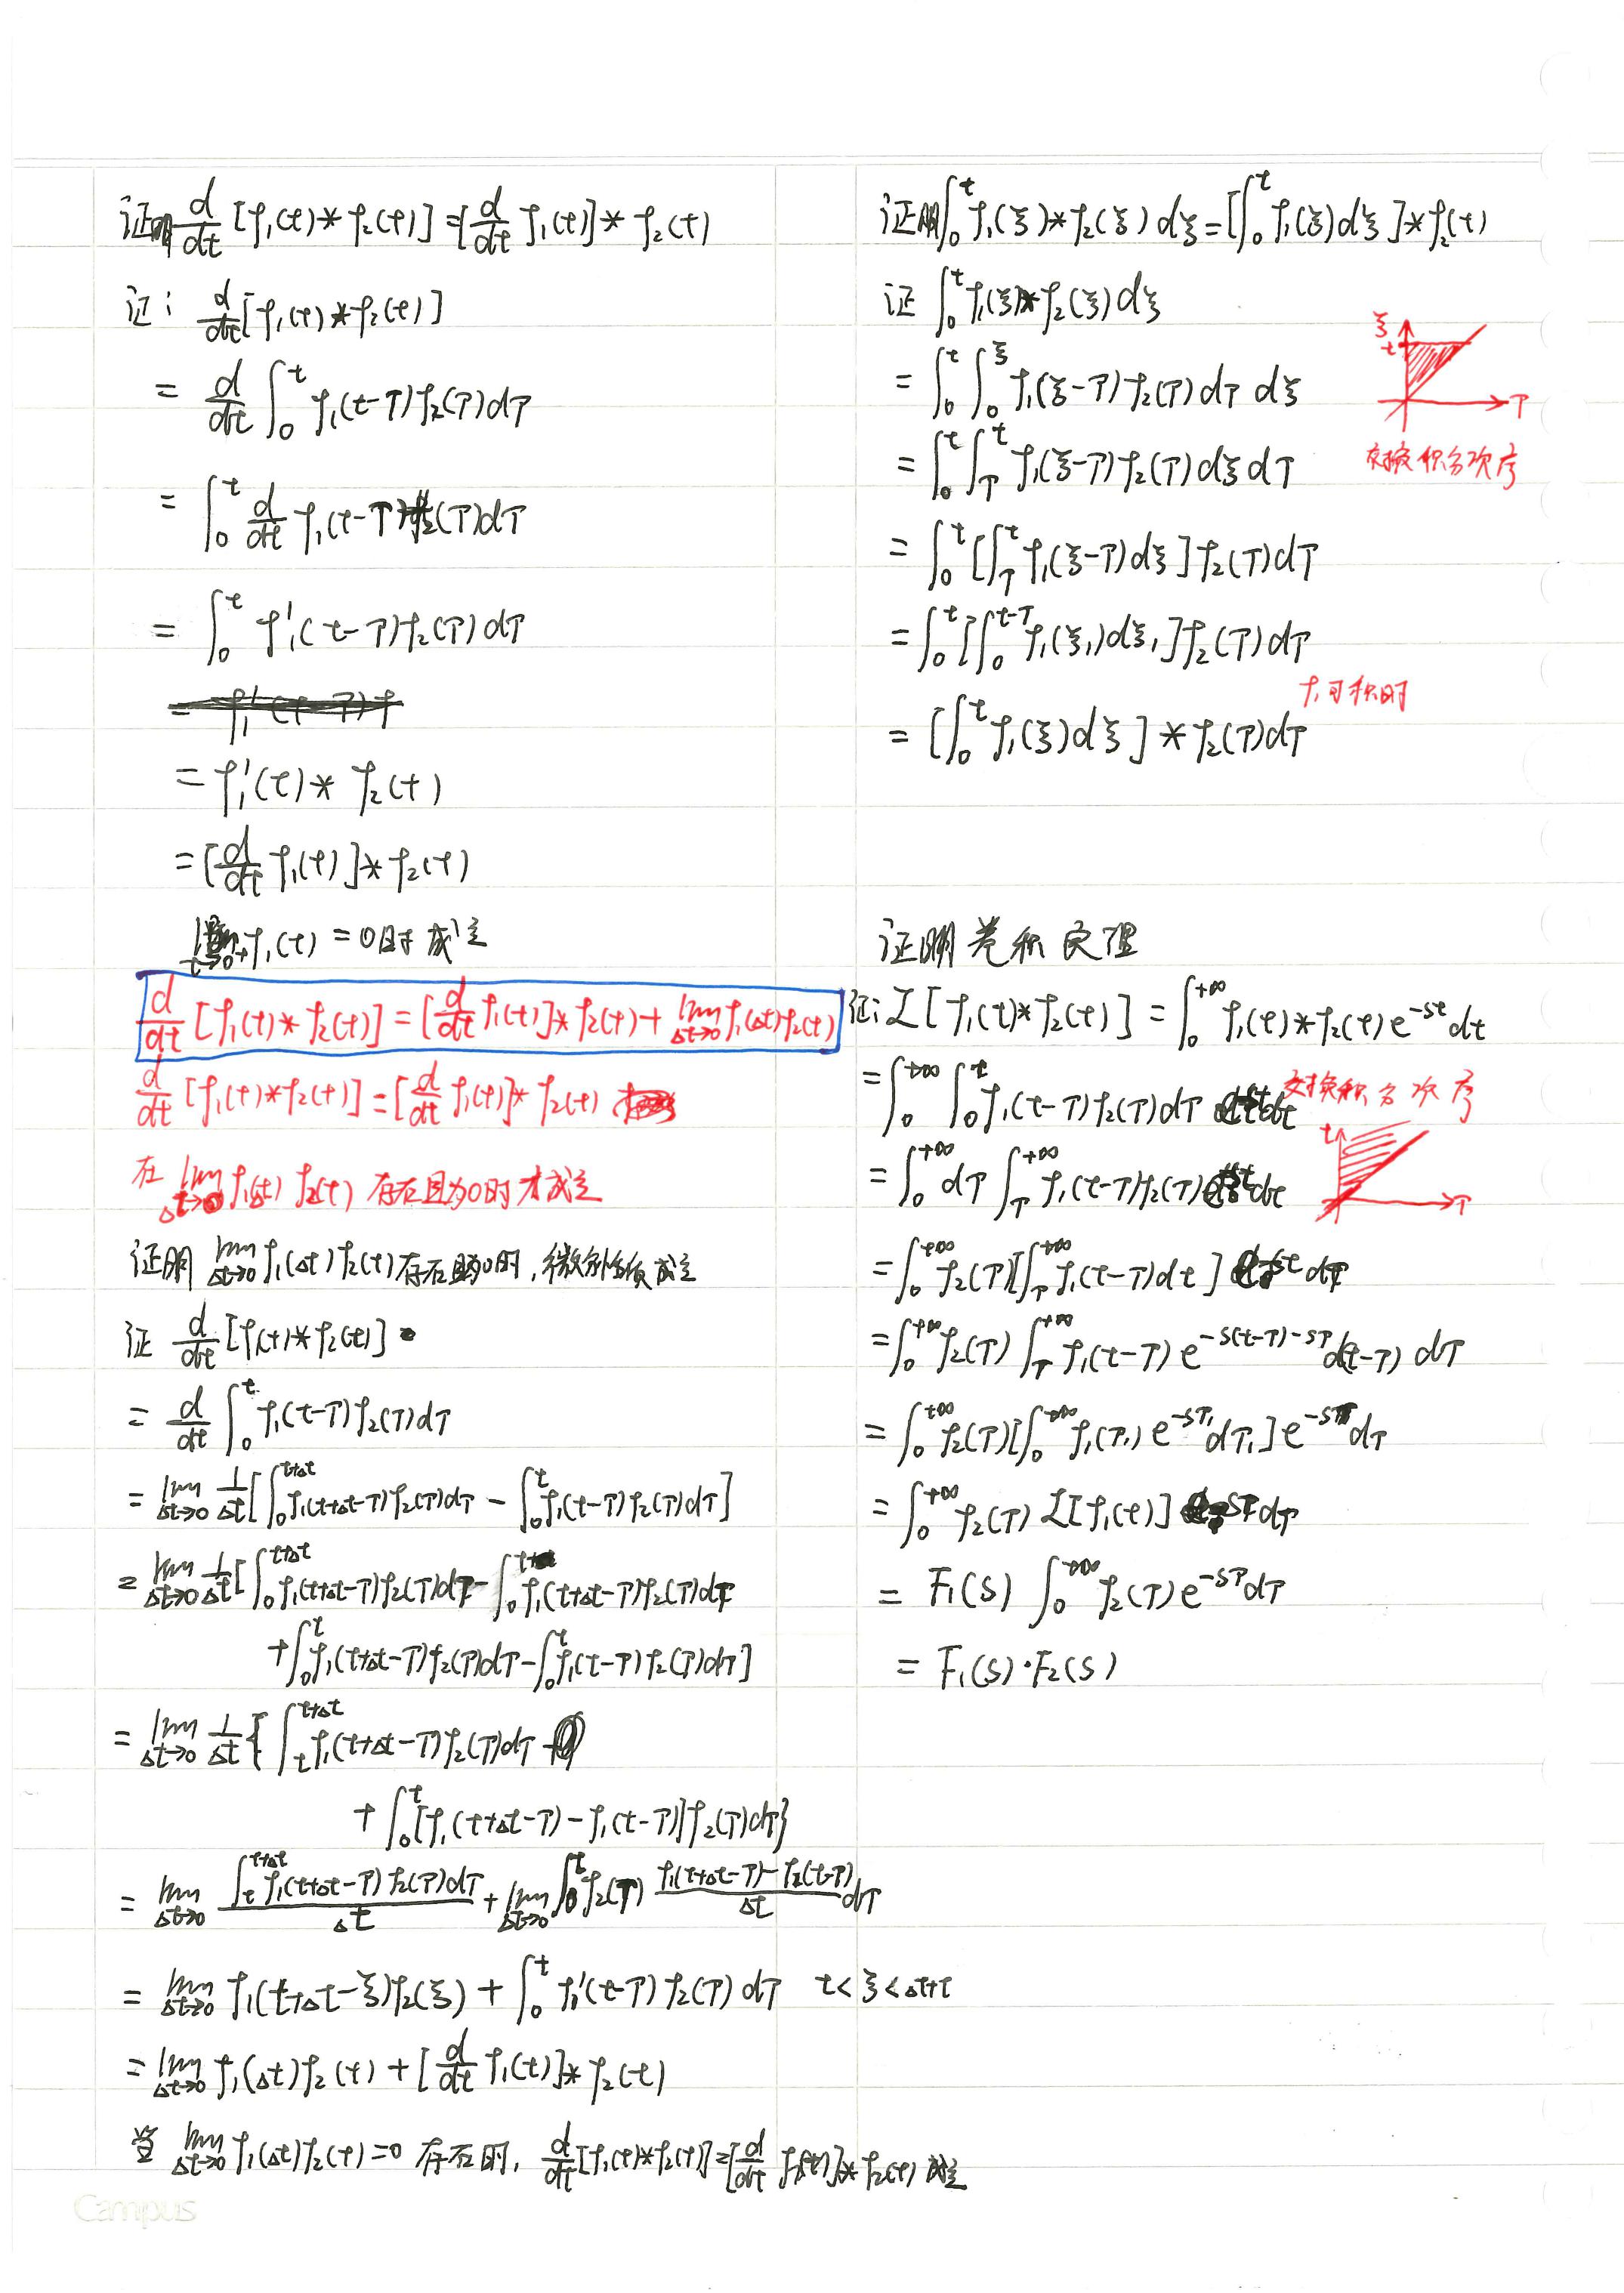 证明 d/dt [f₁(t)*f₂(t)] = [d/dt f₁(t)]*f₂(t)
证: d/dt[f₁(t)*f₂(t)]
= d/dt ∫₀^t f₁(t-τ)f₂(τ)dτ
= ∫₀^t d/dt f₁(t-τ)f₂(τ)dτ
= ∫₀^t f₁'(t-τ)f₂(τ)dτ
= f₁'(t)*f₂(t)
= [d/dt f₁(t)]*f₂(t)
lim_{t→0⁺} f₁(t) = 0时成立
d/dt [f₁(t)*f₂(t)] = [d/dt f₁(t)]*f₂(t) + lim_{Δt→0} f₁(Δt)f₂(t)
d/dt [f₁(t)*f₂(t)] = [d/dt f₁(t)]*f₂(t)
在 lim_{Δt→0} f₁(Δt) f₂(t) 存在且为0时才成立
证明 lim_{Δt→0} f₁(Δt)f₂(t)存在且为0时,微分性质成立
证 d/dt [f₁(t)*f₂(t)]
= d/dt ∫₀^t f₁(t-τ)f₂(τ)dτ
= lim_{Δt→0} 1/Δt [∫₀^{t+Δt} f₁(t+Δt-τ)f₂(τ)dτ - ∫₀^t f₁(t-τ)f₂(τ)dτ]
= lim_{Δt→0} 1/Δt [∫₀^{t+Δt} f₁(t+Δt-τ)f₂(τ)dτ - ∫₀^t f₁(t+Δt-τ)f₂(τ)dτ
+ ∫₀^t f₁(t+Δt-τ)f₂(τ)dτ - ∫₀^t f₁(t-τ)f₂(τ)dτ]
= lim_{Δt→0} 1/Δt {∫_t^{t+Δt} f₁(t+Δt-τ)f₂(τ)dτ
+ ∫₀^t [f₁(t+Δt-τ) - f₁(t-τ)]f₂(τ)dτ}
= lim_{Δt→0} ∫_t^{t+Δt} f₁(t+Δt-τ) f₂(τ)dτ / Δt + lim_{Δt→0} ∫₀^t f₂(τ) (f₁(t+Δt-τ) - f₂(t-τ))/Δt dτ
= lim_{Δt→0} f₁(t+Δt-ξ)f₂(ξ) + ∫₀^t f₁'(t-τ) f₂(τ) dτ t<ξ<Δt+t
= lim_{Δt→0} f₁(Δt)f₂(t) + [d/dt f₁(t)]*f₂(t)
当 lim_{Δt→0} f₁(Δt)f₂(t)=0 存在时, d/dt[f₁(t)*f₂(t)]=[d/dt f₁(t)]*f₂(t) 成立
Campus
证明∫₀^t f₁(ξ)*f₂(ξ) dξ = [∫₀^t f₁(ξ)dξ]*f₂(t)
证 ∫₀^t f₁(ξ)*f₂(ξ)dξ
= ∫₀^t ∫₀^ξ f₁(ξ-τ)f₂(τ)dτ dξ
ξ
t
τ
= ∫₀^t ∫_τ^t f₁(ξ-τ)f₂(τ)dξdτ
交换积分次序
= ∫₀^t [∫_τ^t f₁(ξ-τ)dξ]f₂(τ)dτ
= ∫₀^t [∫₀^{t-τ} f₁(ξ₁)dξ₁]f₂(τ)dτ
f₁可积时
= [∫₀^t f₁(ξ)dξ] * f₂(τ)dτ
证明卷积定理
证: ℒ[f₁(t)*f₂(t)] = ∫₀^{+∞} f₁(t)*f₂(t)e^{-st}dt
= ∫₀^{+∞} ∫₀^t f₁(t-τ)f₂(τ)dτ e^{-st}dt
交换积分次序
t
τ
= ∫₀^{+∞} dτ ∫_τ^{+∞} f₁(t-τ)f₂(τ)e^{-st}dt
= ∫₀^{+∞} f₂(τ)[∫_τ^{+∞} f₁(t-τ)dt] e^{-st}dτ
= ∫₀^{+∞} f₂(τ) ∫_τ^{+∞} f₁(t-τ) e^{-s(t-τ)-sτ}d(t-τ) dτ
= ∫₀^{+∞} f₂(τ)[∫₀^{+∞} f₁(τ₁)e^{-sτ₁}dτ₁]e^{-sτ}dτ
= ∫₀^{+∞} f₂(τ) ℒ[f₁(t)] e^{-sτ}dτ
= F₁(s) ∫₀^{+∞} f₂(τ)e^{-sτ}dτ
= F₁(s)·F₂(s)